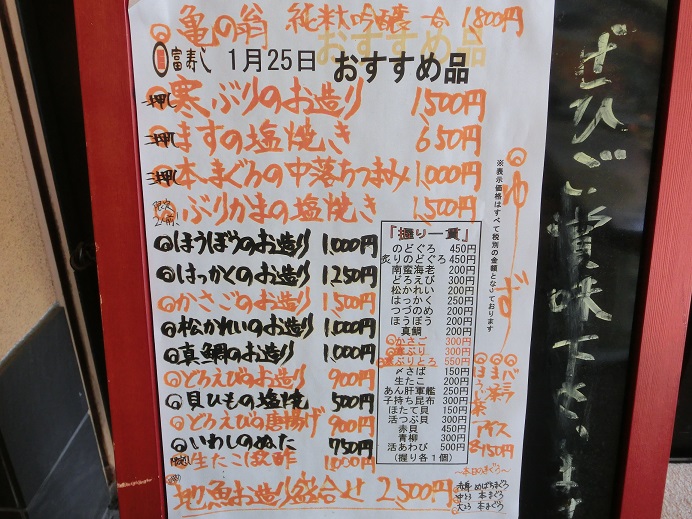 亀の翁 純米大吟醸 一合 1800円
富寿し 1月25日 おすすめ品
一押し 寒ぶりのお造り 1,500円
一押し ますの塩焼き 650円
一押し 本まぐろの中落ちつまみ 1,000円
限定2人前 ぶりかまの塩焼き 1,500円
ほうぼうのお造り 1,000円
はっかくのお造り 1,250円
かさごのお造り 1,500円
松かれいのお造り 1,000円
真鯛のお造り 1,000円
どろえびのお造り 900円
貝ひもの塩焼 500円
どろえびの唐揚げ 900円
いわしのぬた 750円
生たこ 酢 1,000円
地魚お造り盛合せ 2,500円
『握り一貫』
のどぐろ 450円
炙りのどぐろ 450円
南蛮海老 200円
どろえび 300円
松かれい 200円
はっかく 250円
つづのめ 200円
ほうぼう 200円
真鯛 200円
かさご 300円
寒ぶり 300円
寒ぶりとろ 550円
〆さば 150円
生たこ 200円
あん肝軍艦 250円
子持ち昆布 300円
ほたて貝 150円
活つぶ貝 300円
赤貝 450円
青柳 200円
活あわび 500円
(握り各1個)
※表示価格はすべて税別の金額となっております
ゆず
バニラ
抹茶
ほうじ茶
アイス
各150円
〜本日のまぐろ〜
赤身 めばちまぐろ
中とろ 本まぐろ
大とろ 本まぐろ
ぜひご賞味下さいませ